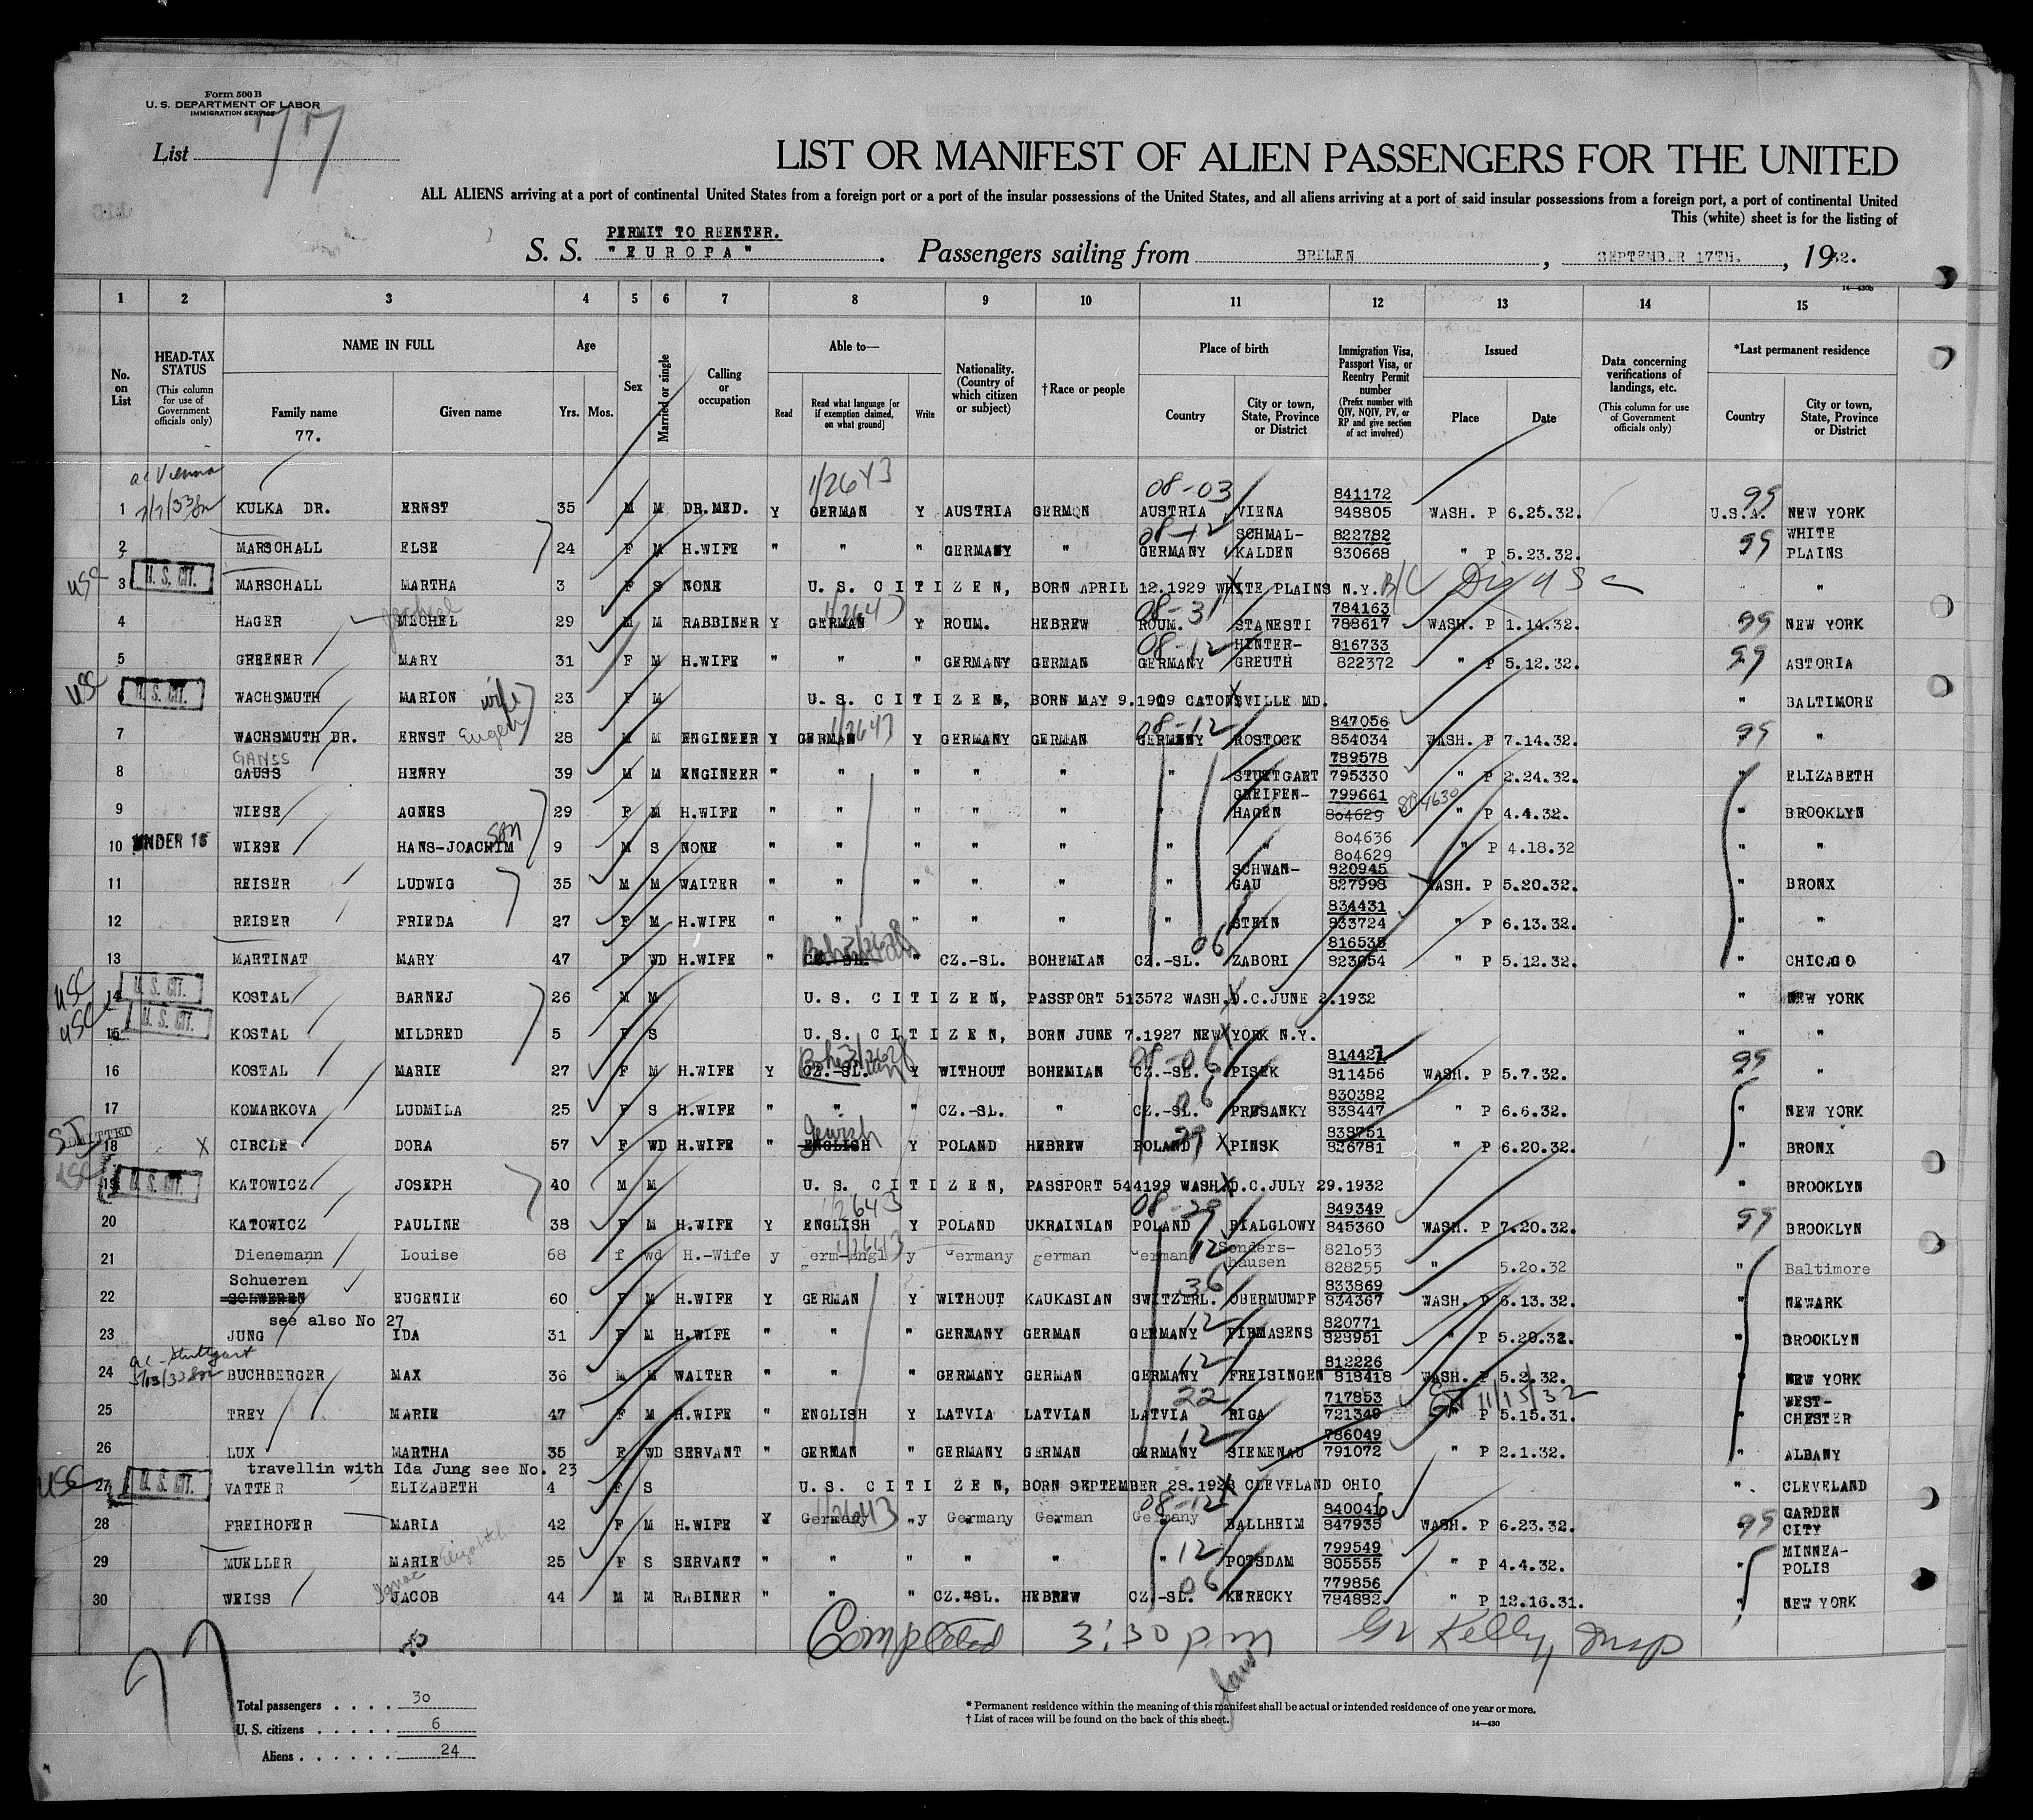 Form 500 B
U. S. DEPARTMENT OF LABOR
IMMIGRATION SERVICE
List 77
LIST OR MANIFEST OF ALIEN PASSENGERS FOR THE UNITED
ALL ALIENS arriving at a port of continental United States from a foreign port or a port of the insular possessions of the United States, and all aliens arriving at a port of said insular possessions from a foreign port, a port of continental United
This (white) sheet is for the listing of
PERMIT TO REENTER.
S. S. "EUROPA". Passengers sailing from BREMEN, SEPTEMBER 17TH., 1932.
14—430b
1 2 3 4 5 6 7 8 9 10 11 12 13 14 15
No. on List
HEAD-TAX STATUS (This column for use of Government officials only)
NAME IN FULL Family name Given name
77.
Age Yrs. Mos.
Sex
Married or single
Calling or occupation
Able to— Read Read what language [or if exemption claimed, on what ground] Write
Nationality. (Country of which citizen or subject)
†Race or people
Place of birth Country City or town, State, Province or District
Immigration Visa, Passport Visa, or Reentry Permit number (Prefix number with QIV, NQIV, PV, or RP and give section of act involved)
Issued Place Date
Data concerning verifications of landings, etc. (This column for use of Government officials only)
*Last permanent residence Country City or town, State, Province or District
ac Vienna 1/2643 08-03 841172 99
1 KULKA DR. ERNST 35 M M DR.MED. Y GERMAN Y AUSTRIA GERMAN AUSTRIA VIENA 848805 WASH. P 6.25.32. U.S.A. NEW YORK
08-12 SCHMAL- 822782 99 WHITE
2 MARSCHALL ELSE 24 F M H.WIFE " " " GERMANY " GERMANY KALDEN 830668 " P 5.23.32. PLAINS
USC U. S. CIT.
3 MARSCHALL MARTHA 3 F S NONE U. S. CITIZEN, BORN APRIL 12.1929 WHITE PLAINS N.Y. B/C "
1/2643 08-31 784163
4 HAGER MECHEL 29 M M RABBINER Y GERMAN Y ROUM. HEBREW ROUM. STANESTI 788617 WASH. P 1.14.32. 99 NEW YORK
08-12 HINTER- 816733
5 GREENER MARY 31 F M H.WIFE " " " GERMANY GERMAN GERMANY GREUTH 822372 " P 5.12.32. 99 ASTORIA
USC U. S. CIT.
WACHSMUTH MARION wife 23 F M U. S. CITIZEN, BORN MAY 9.1909 CATONSVILLE MD. " BALTIMORE
1/2643 08-12 847056
7 WACHSMUTH DR. ERNST Eugen 28 M M ENGINEER Y GERMAN Y GERMANY GERMAN GERMANY ROSTOCK 854034 WASH. P 7.14.32. 99 "
GANSS 789578
8 GAUSS HENRY 39 M M ENGINEER " " " " " " STUTTGART 795330 " P 2.24.32. " ELIZABETH
GREIFEN- 799661
9 WIESE AGNES 29 F M H.WIFE " " " " " " HAGEN 804629 804630 " P 4.4.32. " BROOKLYN
804636
10 UNDER 16 WIESE HANS-JOACHIM son 9 M S NONE " " " " " " " 804629 " P 4.18.32 " "
SCHWAN- 820945
11 REISER LUDWIG 35 M M WAITER " " " " " " GAU 827998 WASH. P 5.20.32. " BRONX
834431
12 REISER FRIEDA 27 F M H.WIFE " " " " " " STEIN 833724 " P 6.13.32. " "
06 816535
13 MARTINAT MARY 47 F WD H.WIFE " CZ.-SL. " CZ.-SL. BOHEMIAN CZ.-SL. ZABORI 823054 " P 5.12.32. " CHICAGO
USC U. S. CIT.
14 KOSTAL BARNEJ 26 M M U. S. CITIZEN, PASSPORT 513572 WASH.D.C.JUNE 2.1932 " NEW YORK
USC U. S. CIT.
15 KOSTAL MILDRED 5 F S U. S. CITIZEN, BORN JUNE 7.1927 NEW YORK N.Y. " "
Bohemian 08-06 814427 99
16 KOSTAL MARIE 27 F M H.WIFE Y CZ.-SL. Y WITHOUT BOHEMIAN CZ.-SL. PISEK 811456 WASH. P 5.7.32. "
06 830382
17 KOMARKOVA LUDMILA 25 F S H.WIFE " " " CZ.-SL. " CZ.-SL. PRUSANKY 838447 " P 6.6.32. " NEW YORK
SI ADMITTED Jewish 29 838751
18 X CIRCLE DORA 57 F WD H.WIFE " ENGLISH Y POLAND HEBREW POLAND PINSK 826781 " P 6.20.32. " BRONX
USC U. S. CIT.
19 KATOWICZ JOSEPH 40 M M U. S. CITIZEN, PASSPORT 544199 WASH.D.C.JULY 29.1932 " BROOKLYN
1/2643 08-29 849349
20 KATOWICZ PAULINE 38 F M H.WIFE Y ENGLISH Y POLAND UKRAINIAN POLAND BIALGLOWY 845360 WASH. P 7.20.32. 99 BROOKLYN
1/2643 12 Sonders- 821o53
21 Dienemann Louise 68 f wd H.-Wife y germ-engl y Germany german Germany hausen 828255 " 5.2o.32 " Baltimore
Schueren 36 833869
22 SCHWEREN EUGENIE 60 F M H.WIFE Y GERMAN Y WITHOUT KAUKASIAN SWITZERL. OBERMUMPF 834367 WASH. P 6.13.32. " NEWARK
see also No 27 12 820771
23 JUNG IDA 31 F M H.WIFE " " " GERMANY GERMAN GERMANY PIRMASENS 828951 " P 5.20.32. " BROOKLYN
ac-Stuttgart 12 812226
24 BUCHBERGER MAX 36 M M WAITER " " " GERMANY GERMAN GERMANY FREISINGEN 818418 WASH. P 5.2.32. " NEW YORK
22 717853 11/15/32 WEST-
25 TREY MARIE 47 F M H.WIFE " ENGLISH Y LATVIA LATVIAN LATVIA RIGA 721349 " P 5.15.31. " CHESTER
12 786049
26 LUX MARTHA 35 F WD SERVANT " GERMAN " GERMANY GERMAN GERMANY SIEMENAU 791072 " P 2.1.32. " ALBANY
travellin with Ida Jung see No. 23
USC U. S. CIT.
27 VATTER ELIZABETH 4 F S U. S. CITIZEN, BORN SEPTEMBER 28.1928 CLEVELAND OHIO ". CLEVELAND
1/2643 08-12 840046 GARDEN
28 FREIHOFER MARIA 42 F M H.WIFE Y German y Germany German Germany BALLHEIM 847935 WASH. P 6.23.32. 99 CITY
Elizabeth 12 799549 MINNEA-
29 MUELLER MARIE 25 F S SERVANT " " " " " " POTSDAM 805555 " P 4.4.32. " POLIS
Ignac 06 779856
30 WEISS JACOB 44 M M RABINER " " " CZ.-SL. HEBREW CZ.-SL. KERECKY 784882 " P 12.16.31. " NEW YORK
Completed 3:30 pm Kelly, Insp
77
Total passengers . . . . 30
U. S. citizens . . . . . 6
Aliens . . . . . . 24
* Permanent residence within the meaning of this manifest shall be actual or intended residence of one year or more.
† List of races will be found on the back of this sheet.
14—430